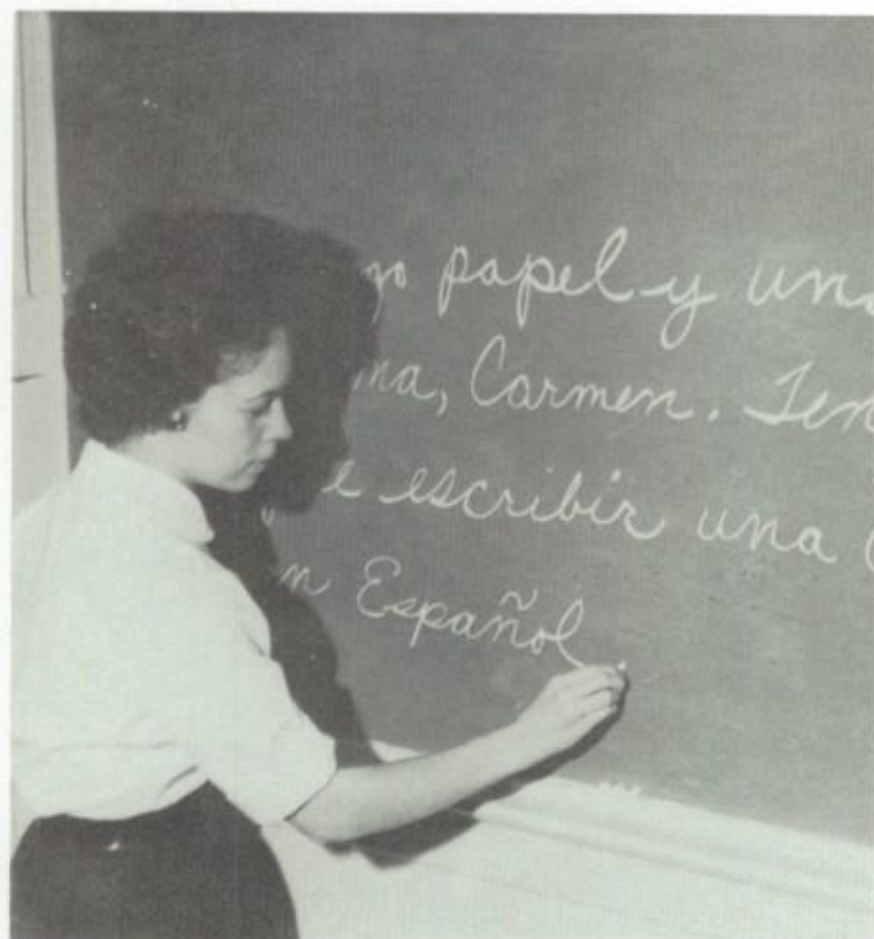 go papel y una
ma, Carmen. Ten
e escribir una
n Español.